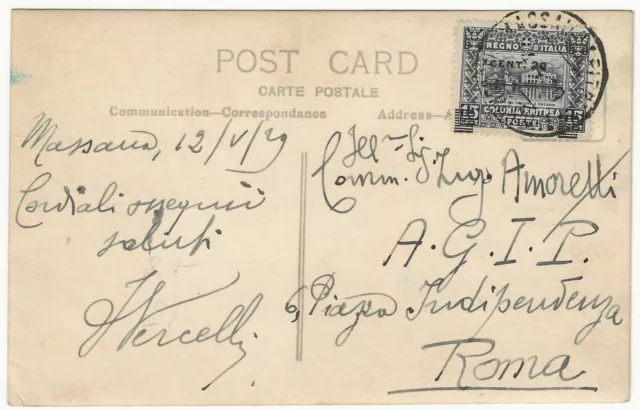 POST CARD
CARTE POSTALE
Communication—Correspondance
Address—A
MASSAUA
REGNO D'ITALIA
CENT. 20
15 15
COLONIA ERITREA
POSTE
Massaua, 12/V/29
Cordiali ossequii
saluti
Vercelli
Ill. Sig.
Comm. Luigi Amoretti
A.G.I.P.
6, Piazza Indipendenza
Roma